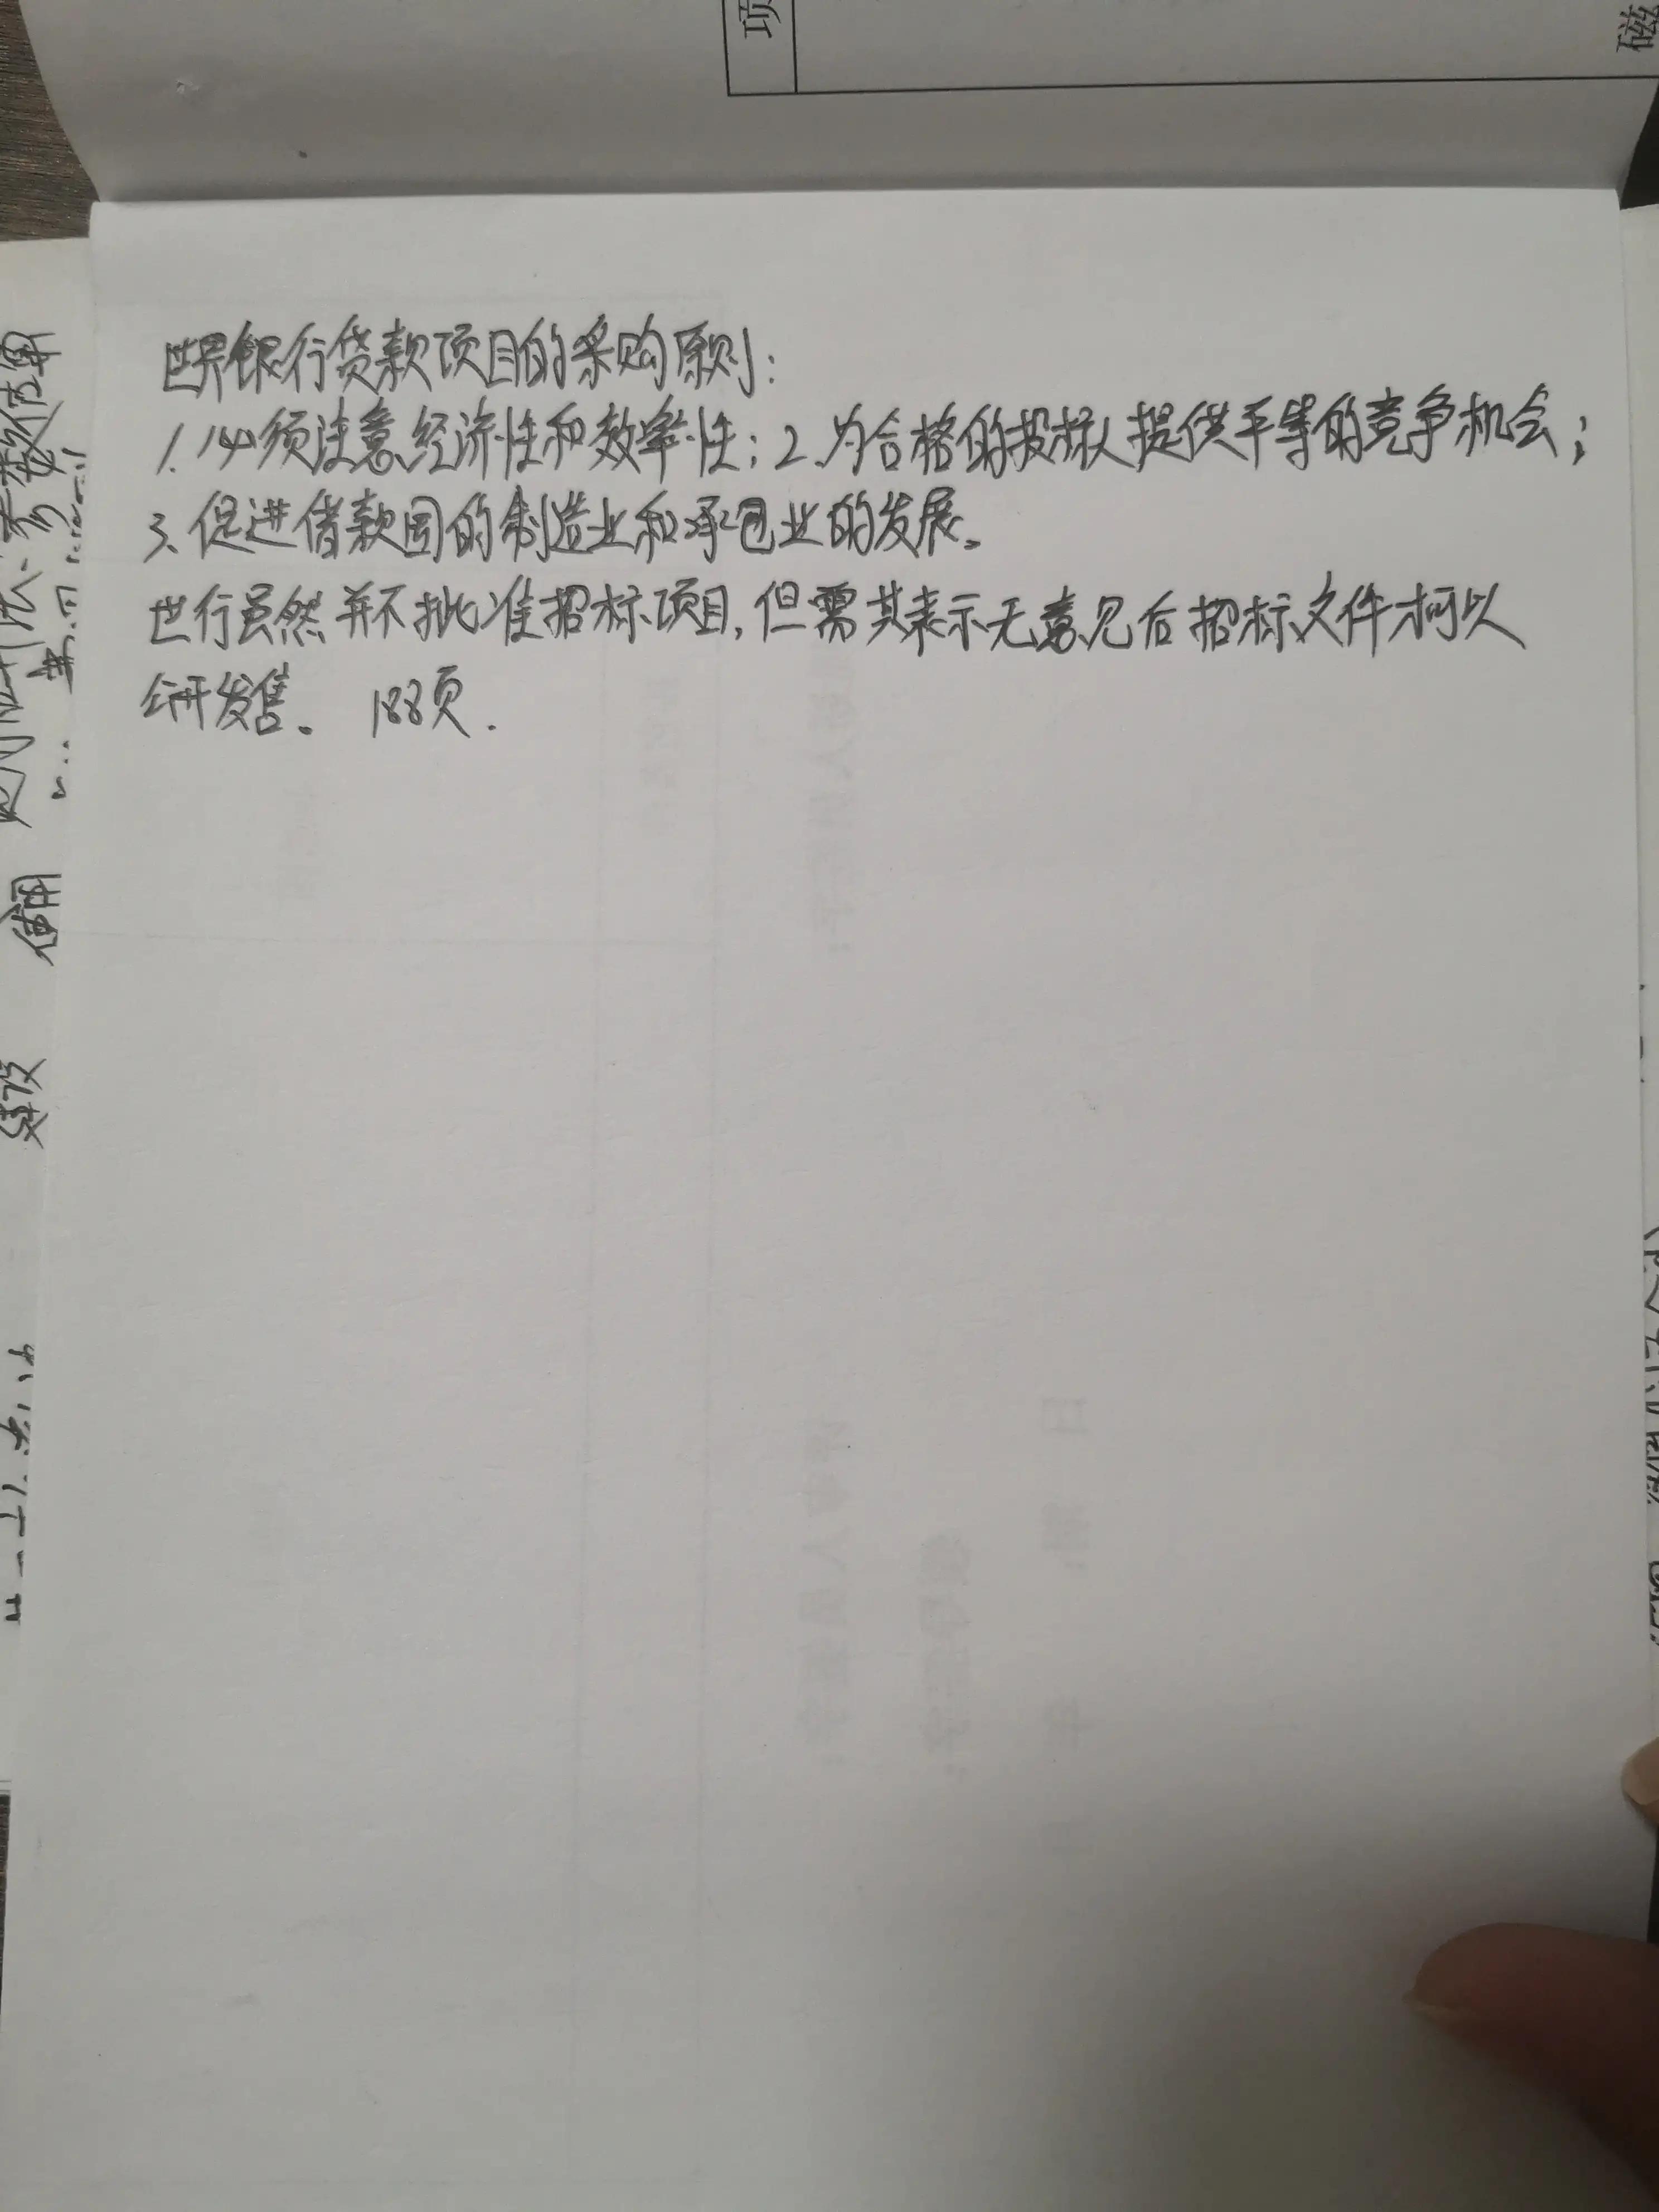 世界银行贷款项目的采购原则:
1.必须注意经济性和效率性;2.为合格的投标人提供平等的竞争机会;
3.促进借款国的制造业和承包业的发展。
世行虽然并不批准招标项目,但需其表示无意见后招标文件才可以
公开发售。 188页.
项
磁
使用
建设